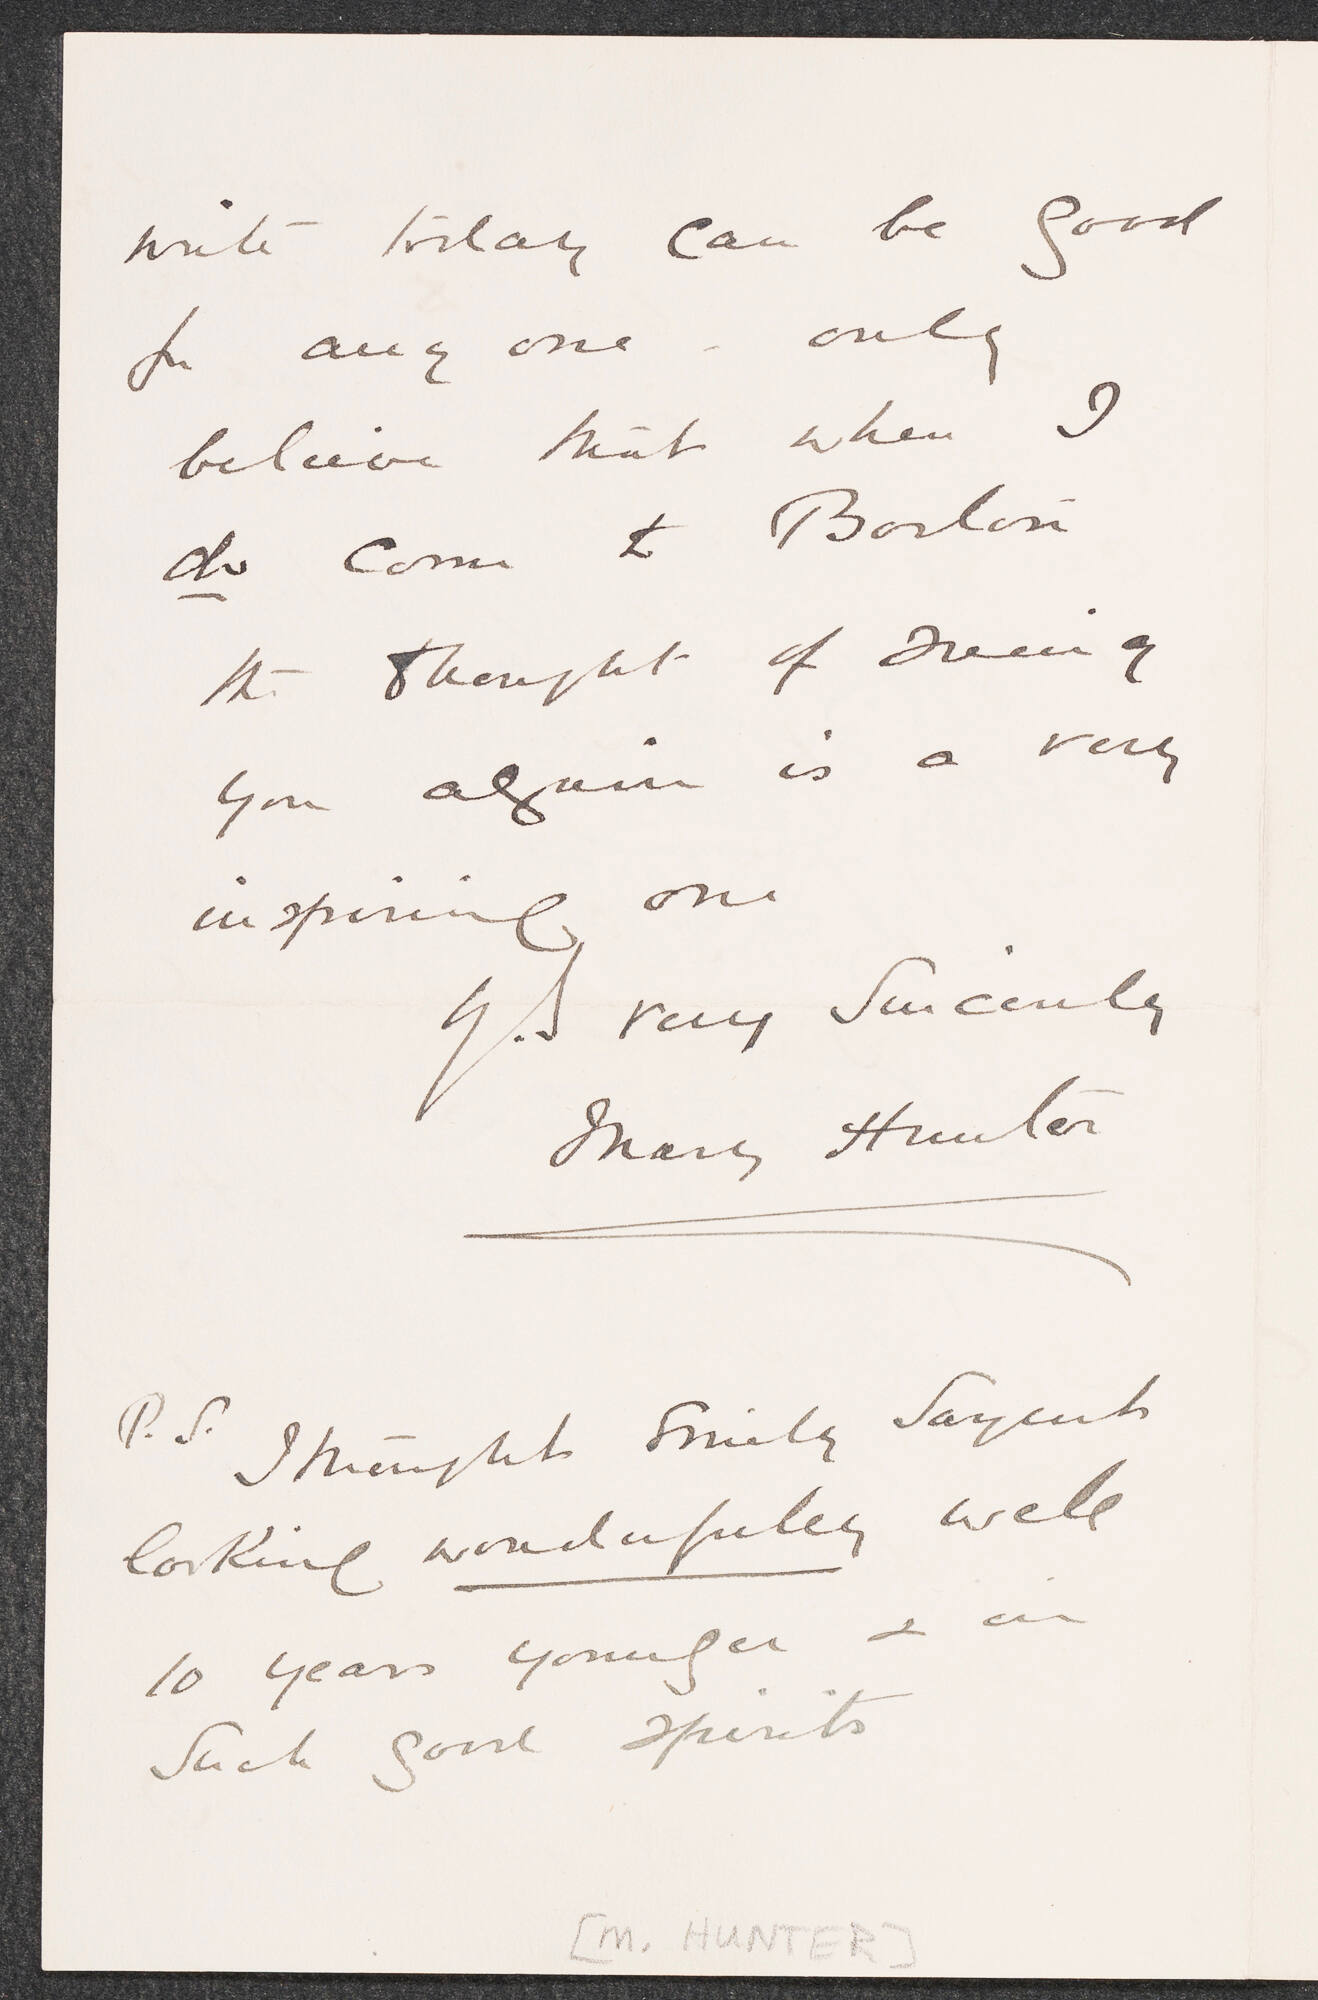 write today can be good
for any one - only
believe that when I
do come to Boston
the thought of seeing
you again is a very
inspiring one
Yrs very Sincerely
Mary Hunter
P.S. I thought Emily Sargent
looking wonderfully well
10 years younger & in
such good spirits
[M. HUNTER]